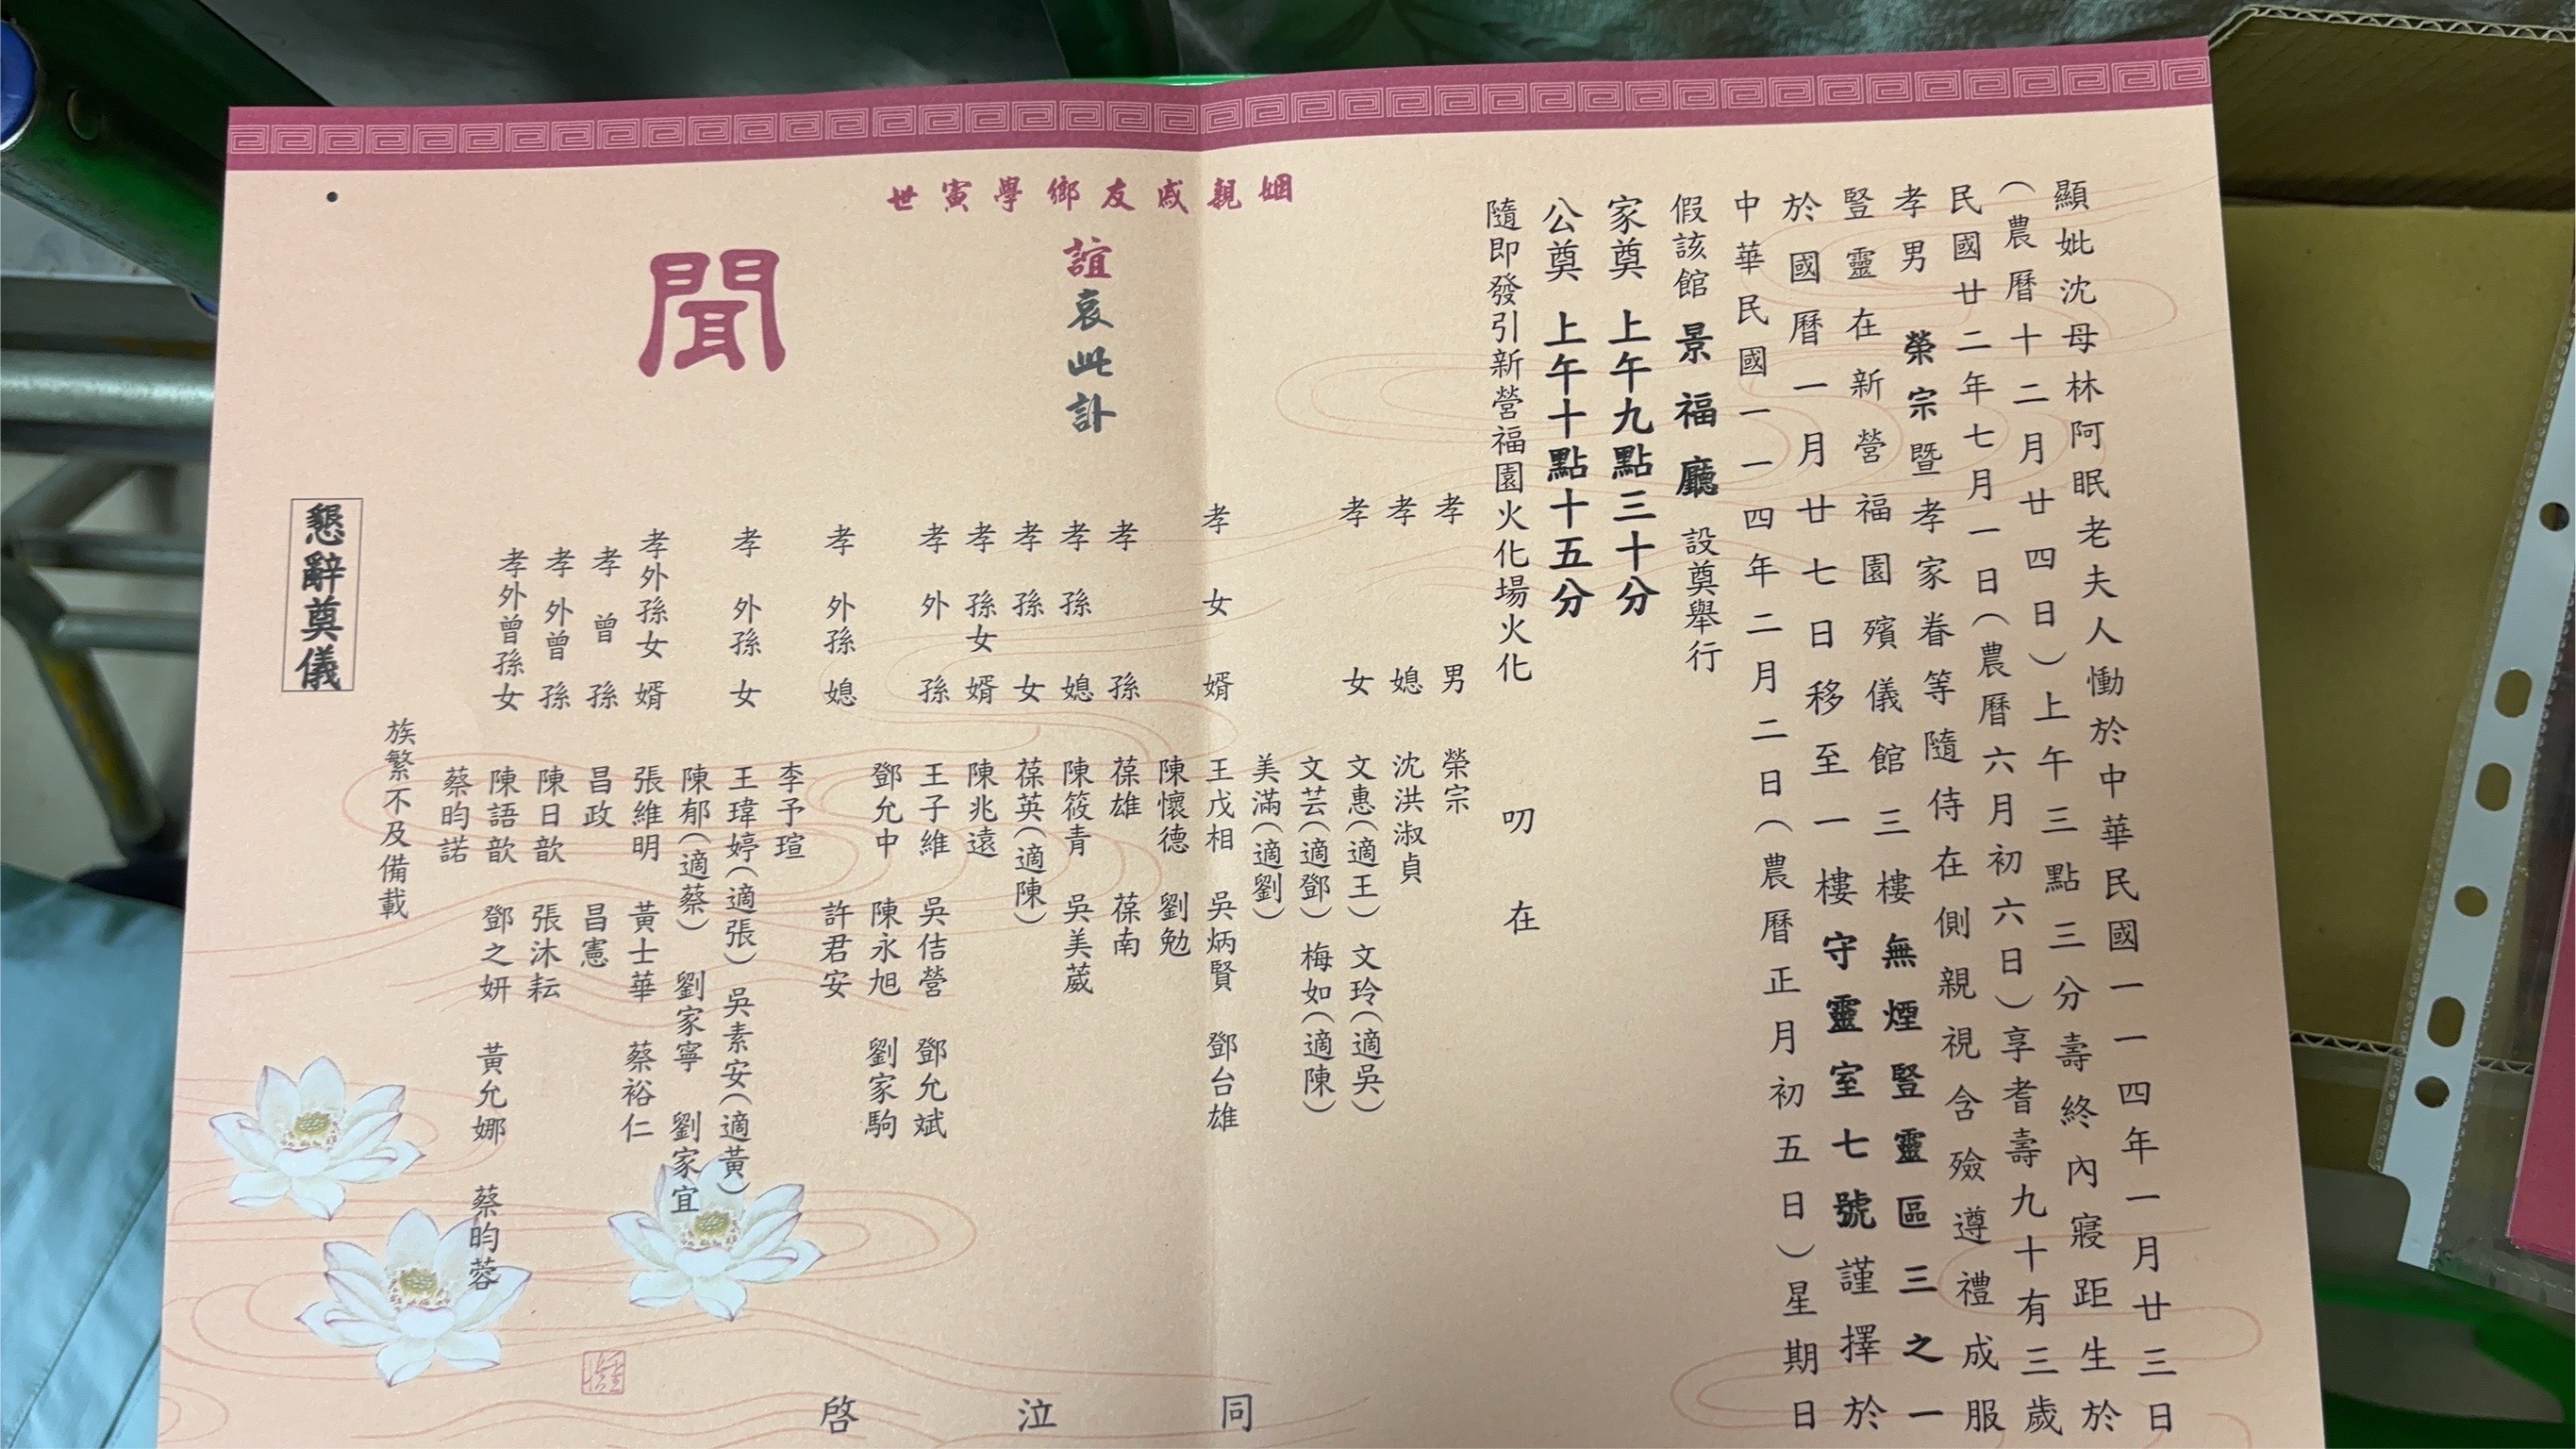 顯妣沈母林阿眠老夫人慟於中華民國一一四年一月廿三日
（農曆十二月廿四日）上午三點三分壽終內寢距生於
民國廿二年七月一日（農曆六月初六日）享耆壽九十有三歲
孝男 榮宗暨孝家眷等隨侍在側親視含殮遵禮成服
豎靈在新營福園殯儀館三樓無煙豎靈區三之一
於國曆一月廿七日移至一樓守靈室七號謹擇於
中華民國一一四年二月二日（農曆正月初五日）星期日
假該館 景福廳 設奠舉行
家奠 上午九點三十分
公奠 上午十點十五分
隨即發引新營福園火化場火化
叨在
姻親戚友鄉學寅世
誼哀此訃
聞
孝男 榮宗
孝媳 沈洪淑貞
孝女 文惠（適王） 文玲（適吳）
文芸（適鄧） 梅如（適陳）
美滿（適劉）
孝女婿 王戊相 吳炳賢 鄧台雄
陳懷德 劉勉
孝孫 葆雄 葆南
孝孫媳 陳筱青 吳美葳
孝孫女 葆英（適陳）
孝孫女婿 陳兆遠
孝外孫 王子維 吳佶營 鄧允斌
鄧允中 陳永旭 劉家駒
孝外孫媳 許君安
李予瑄
孝外孫女 王瑋婷（適張） 吳素安（適黃）
陳郁（適蔡） 劉家寧 劉家宜
孝外孫女婿 張維明 黃士華 蔡裕仁
孝曾孫 昌政 昌憲
孝外曾孫 陳日歆 張沐耘
孝外曾孫女 陳語歆 鄧之妍 黃允娜 蔡昀蓉
蔡昀諾
族繁不及備載
同泣啓
懇辭奠儀